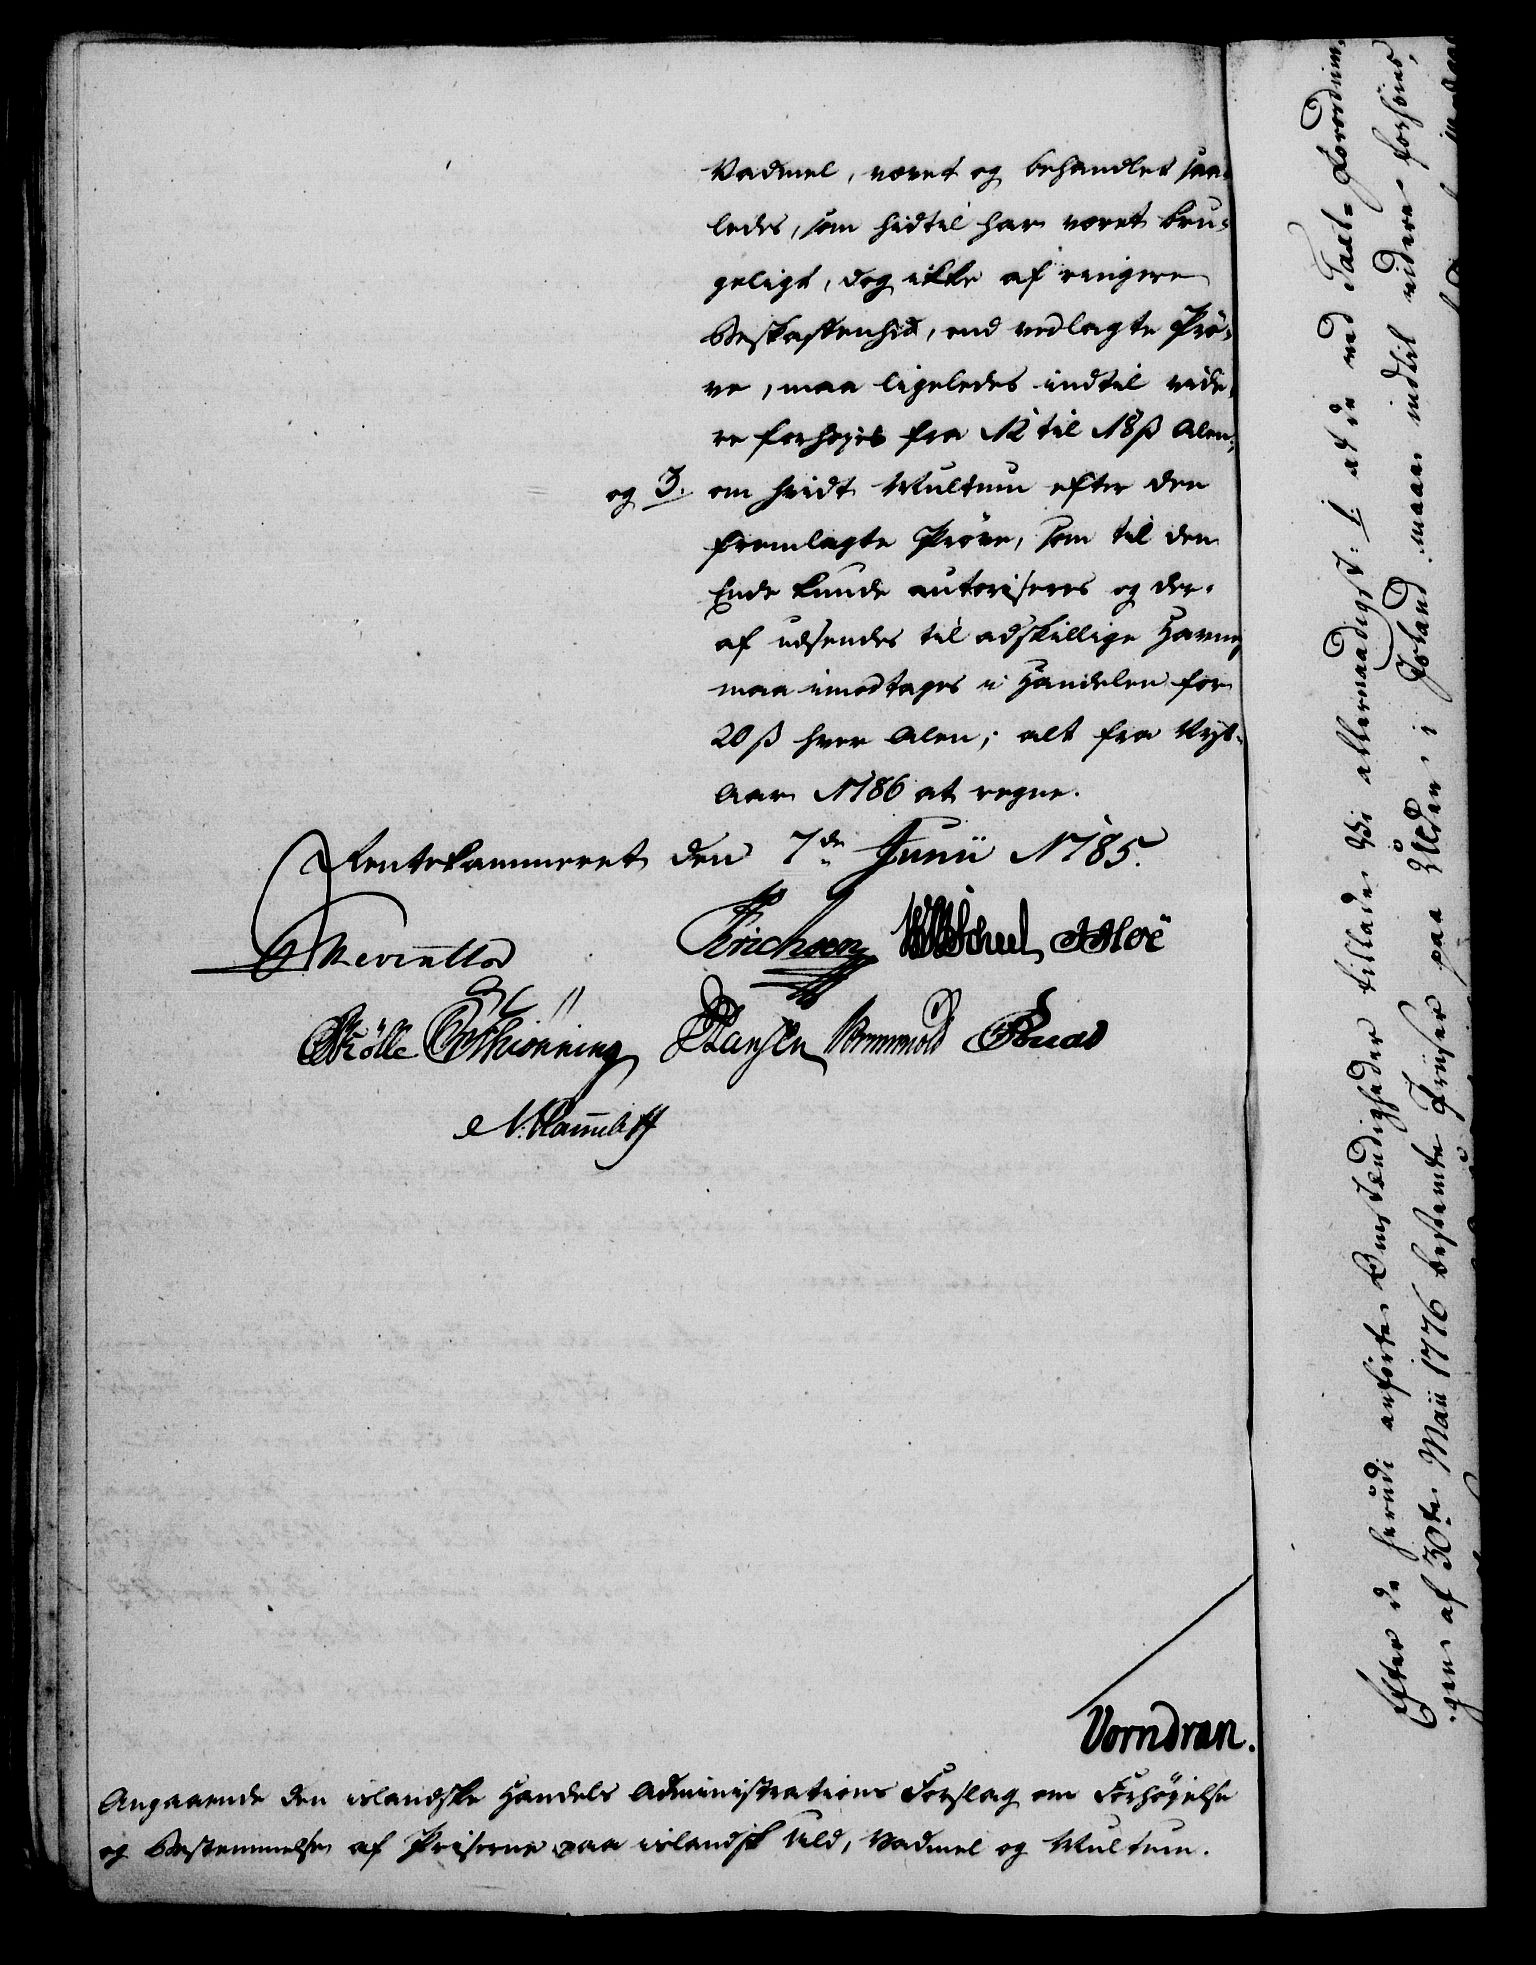 Vadmel, vævet og behandlet saa-
ledes, som hidtil har været bru-
geligt, dog ikke af ringere
Beskaffenhed, end vedlagte Prö-
ve, maa ligeledes indtil vide-
re forhøyes fra 12 til 18 ß Alen;
og 3. om hvidt Multum efter den
fremlagte Pröve, som til den
Ende kunde autoriseres og der-
af udsendes til adskillige Havne,
maa imodtages i Handelen for
20 ß hver Alen; alt fra Nyt-
aar 1786 at regne.
Rentekammeret den 7de Junii 1785.
Reventlow
Erichsen
Scheel
Hoë
Thiönning Hansen
Vorndran.
Angaaende den islandske Handels Administrations Forslag om Forhøyelse
og Bestemmelse af Priserne paa islandsk Uld, Vadmel og Multum.
Efter de herudi anførte Omstændigheder tillade Vi allernaadigst: 1. at de ved Taxt-Forordnin-
gen af 30te Maii 1776 bestemte Priiser paa Ulden i Island maae indtil videre forhöies,